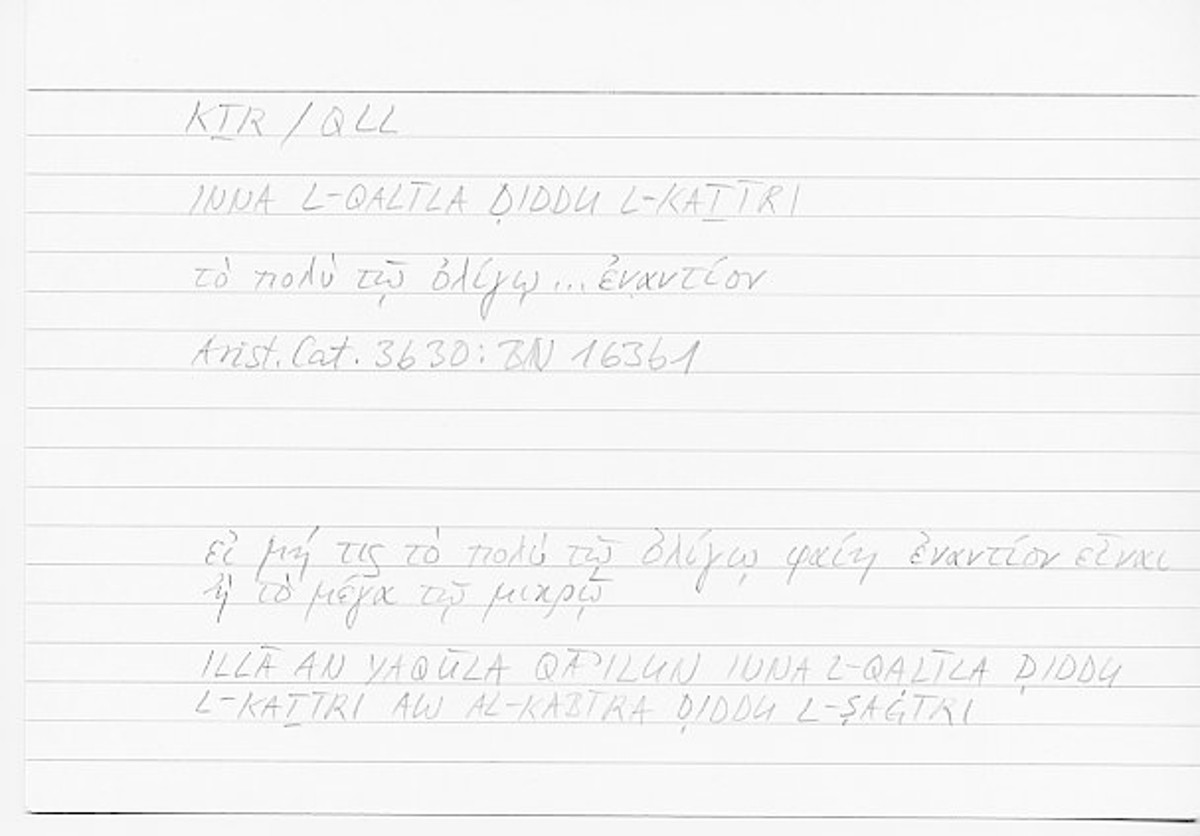 KṮR / QLL
INNA L-QALĪLA ḌIDDU L-KAṮĪRI
τὸ πολὺ τῷ ὀλίγῳ ... ἐναντίον
Arist. Cat. 3b30: BN 16361
εἰ μή τις τὸ πολὺ τῷ ὀλίγῳ φαίη ἐναντίον εἶναι
ἢ τὸ μέγα τῷ μικρῷ
ILLĀ AN YAQŪLA QĀʾILUN INNA L-QALĪLA ḌIDDU
L-KAṮĪRI AW AL-KABĪRA ḌIDDU L-ṢAĠĪRI